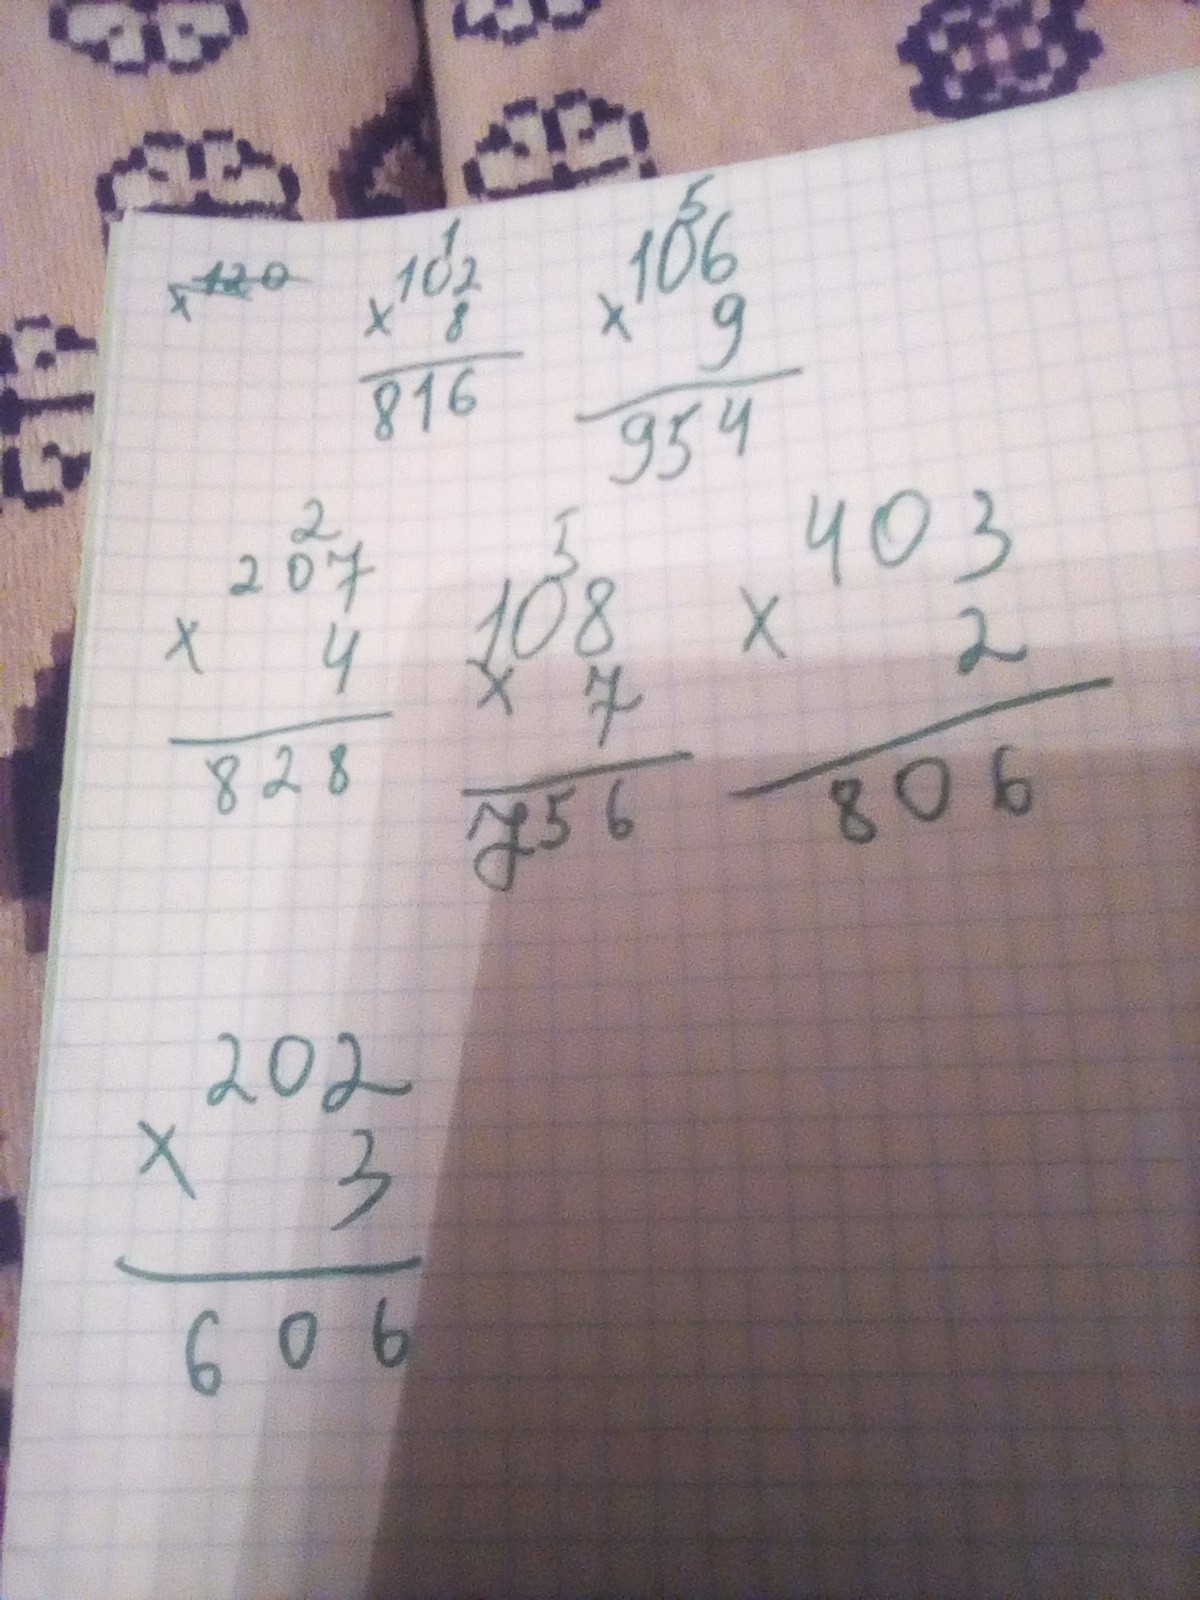 x 120
1
102
x 8
816
5
106
x 9
954
2
207
x 4
828
5
108
x 7
756
403
x 2
806
202
x 3
606